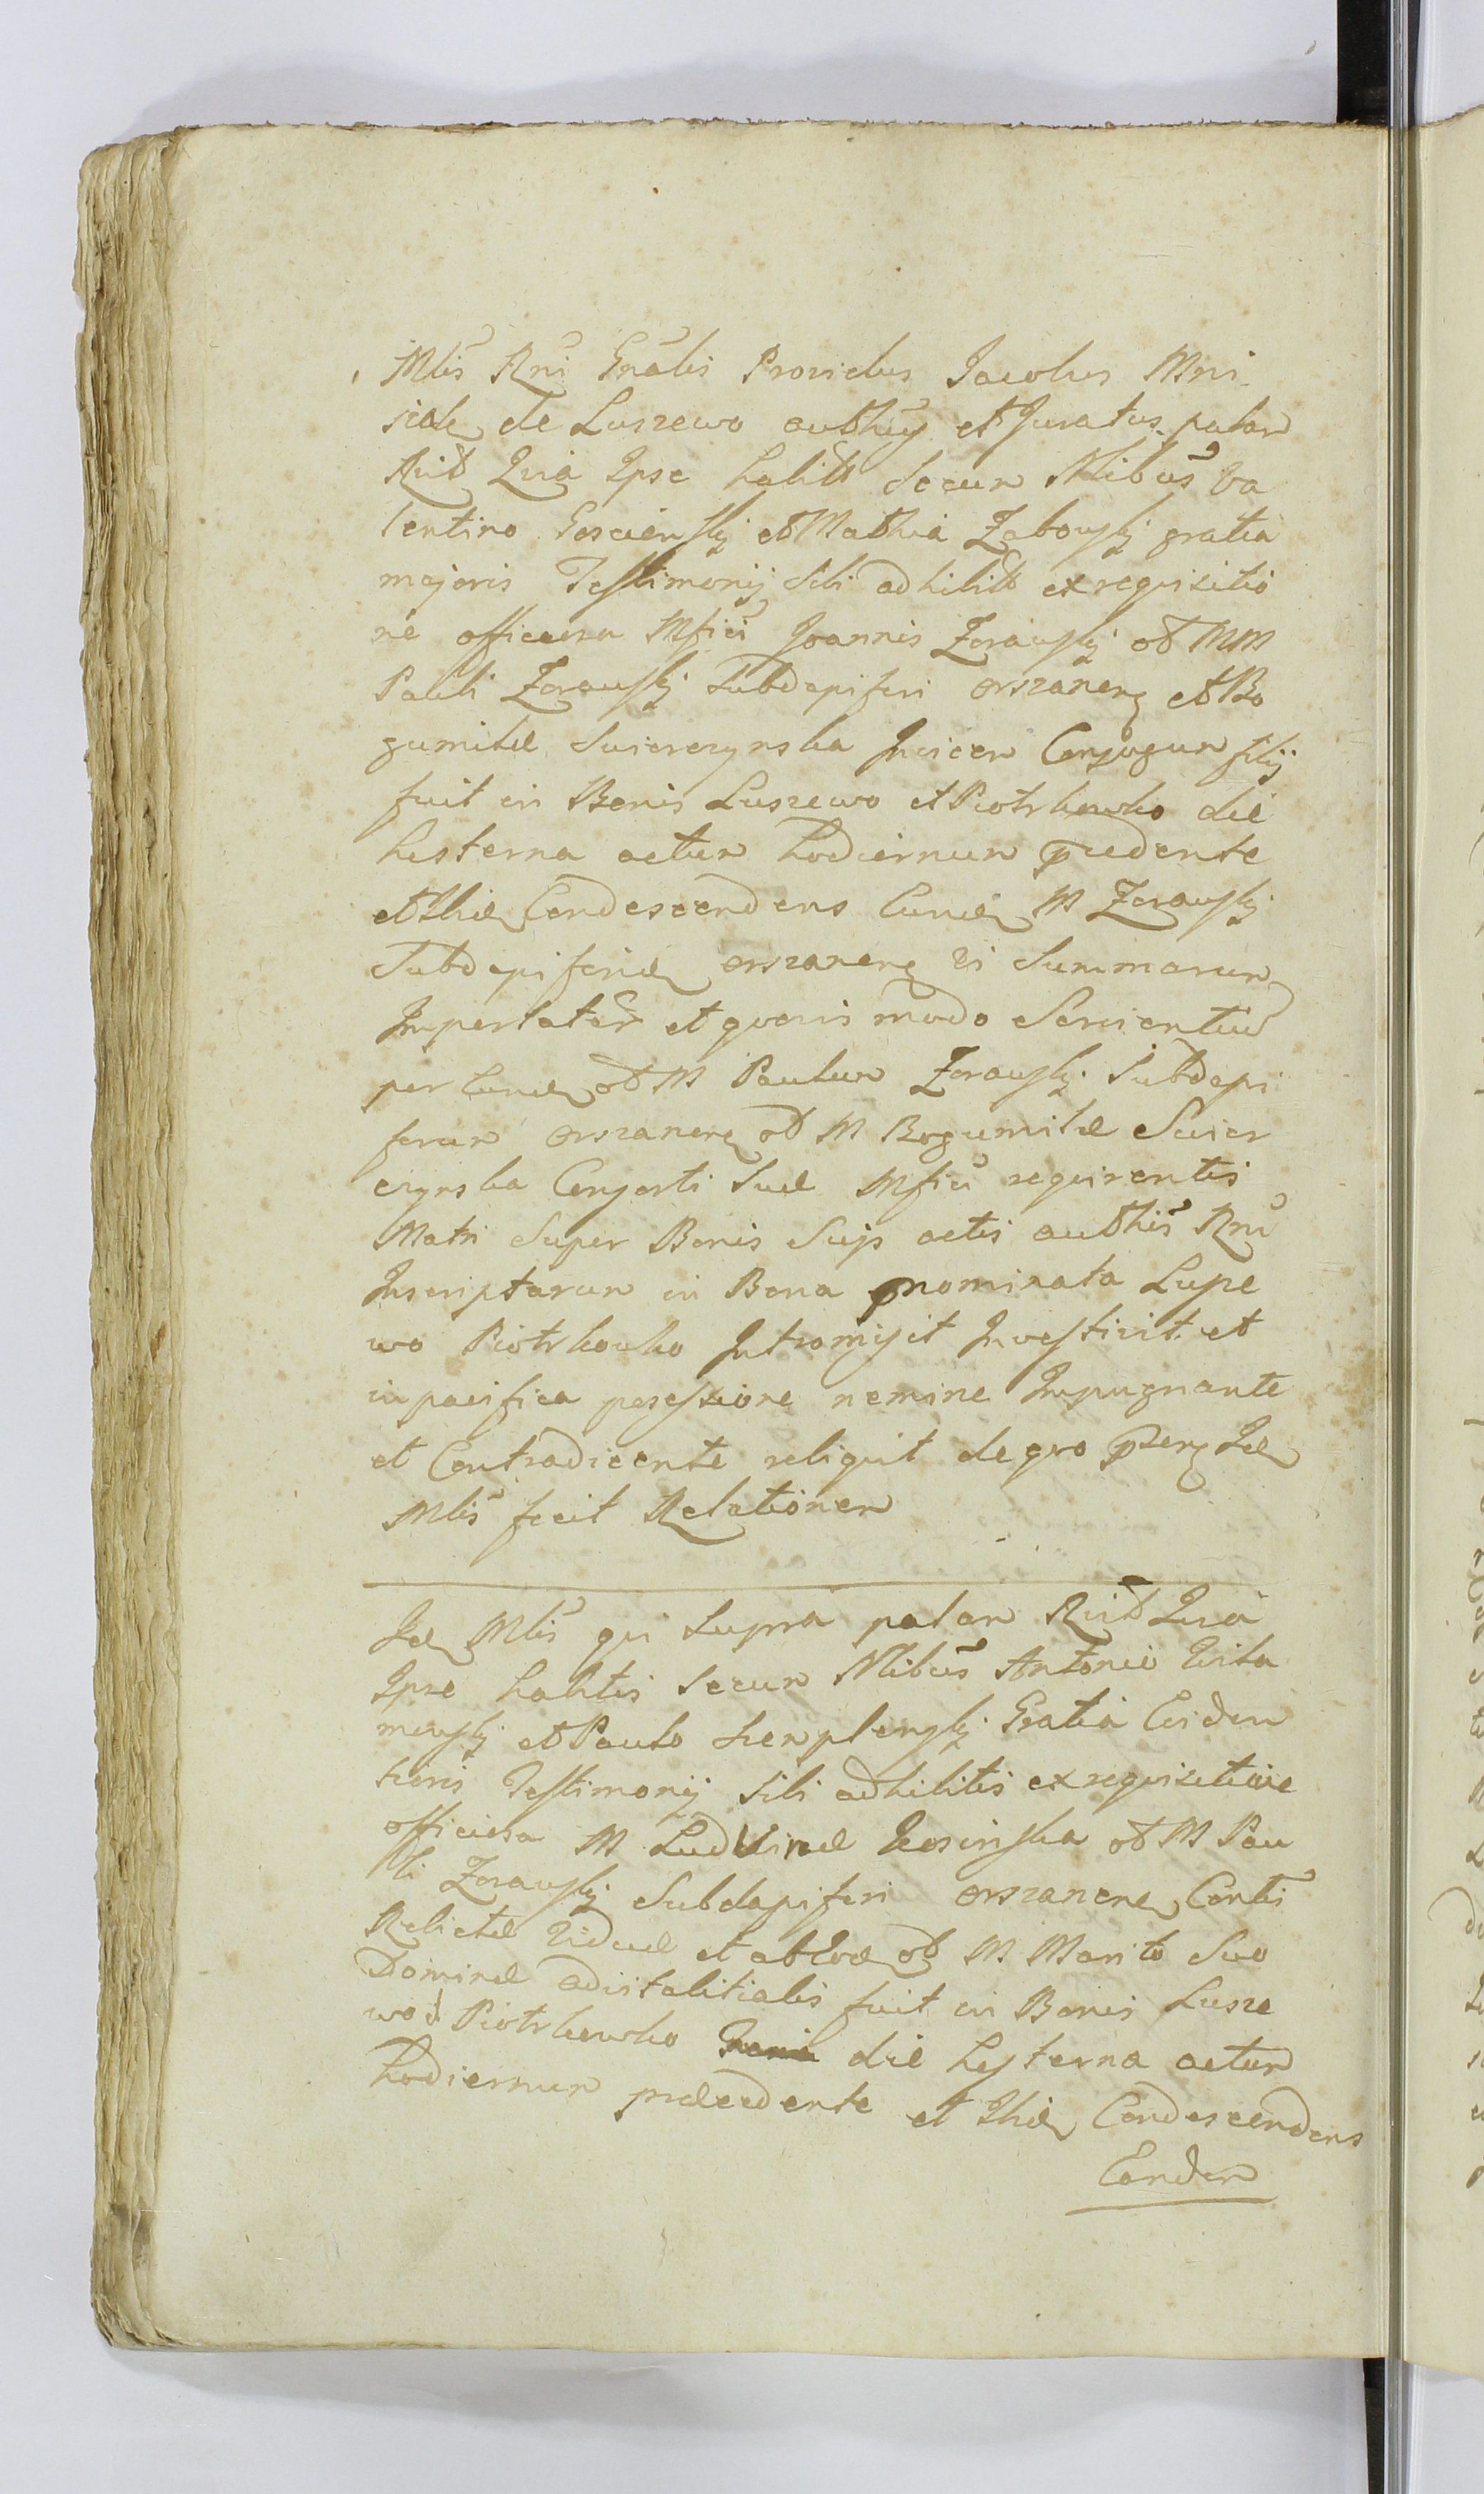 Mlis Rni Gnalis Providus Jacobus Mni
siale de Luszewo authus et Juratus palam
Ruit Quia Ipse habitt secum Nlibus Va
lentino Gosciensky et Mathia Zabowsky gratia
majoris Testimonij sibi adhibitt ex requisitio
ne officiosa Mfici Joannis Zorawsky ob MM
Pauli Zorawsky Subdapiferi orszanens et Bo
gumilæ Swierczynska Invicem Conjugum filij
fuit in Bonis Luszewo et Piotrkowko die
hesterna actum hodiernum pcedente
et Ibid Condescendens Eund M Zorawsky
Subdapiferid orszanens vi Summarum
Imperlater et quovis modo Servientiu
per Eund ob M Paulum Zorawsky Subdapi
ferum orszanens ob M Bogumilæ Swier
czynska Consorti Suæ Mfici requirentis
Matri Super Bonis Suis actis authis Rni
Inscriptarum in Bona pnominata Lusze
wo Piotrkowko Intromisit Investivit et
in pacifica possessione nemine Impugnante
et Contradicente reliquit de quo psens Id
Mlis fecit Relationem
Id Mlis qui Supra palam Ruit Quia
Ipse habitis secum Nlibus Antonio Wita
mowsky et Paulo Gratia Eviden
tioris Testimonij Sibi adhibitis ex requisitione
officiosa M Ludvinæ Kosinska ob M Pau
li Zorawsky Subdapiferi orszanens Contis
Relictæ Viduæ et ab M Marito Suo
Dominæ advitalitialis fuit in Bonis Lusze
wo Piotrkowko die hesterna actum
hodiernum præcedente et Ibid Condescendens
Eandem